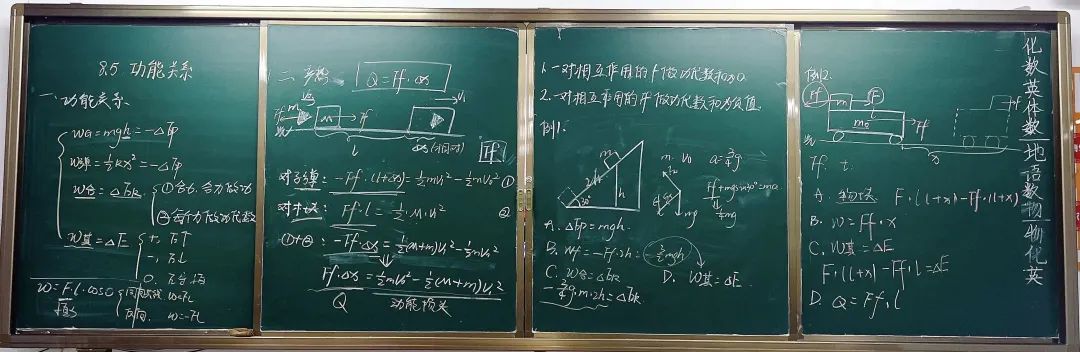 8.5 功能关系
一、功能关系
WG=mgh=-ΔEp
W弹=½kx²=-ΔEp
W合=ΔEk ①合力做功
②每个力做功代数
W其=ΔE
+, E↑
-, E↓
0, E
W=F·l·cosθ
W=FL
反向, W=-FL
二、
Q=Ff·Δx
m v0
m Ff
v1
l Δx (相对)
Ff
对子弹: -Ff·(l+Δx)=½mv1²-½mv0² ①
对木块: Ff·l=½·M·v1² ②
①+②: -Ff·Δx=½(M+m)v1²-½mv0²
Ff·Δx=½mv0²-½(M+m)v1²
Q
1. 一对相互作用的f做功代数和为0.
2. 一对相互作用的Ff做功代数和为负值.
例1.
m 2h h 30°
m v0 a=¾g
mg
Ff+mgsin30°=ma
A. ΔEp=mgh.
B. Wf=-Ff·2h=-½mgh
C. W合=ΔEk
D. W其=ΔE
-¾g·m·2h=ΔEk
例2.
Ff m F
m0 Ff
x
Ff
Ff l.
A. F·(l+x)-Ff·(l+x)
B. W=Ff·x
C. W其=ΔE
F·(l+x)-Ff·l=ΔE
D. Q=Ff·l
化数英体数地语数物物化英